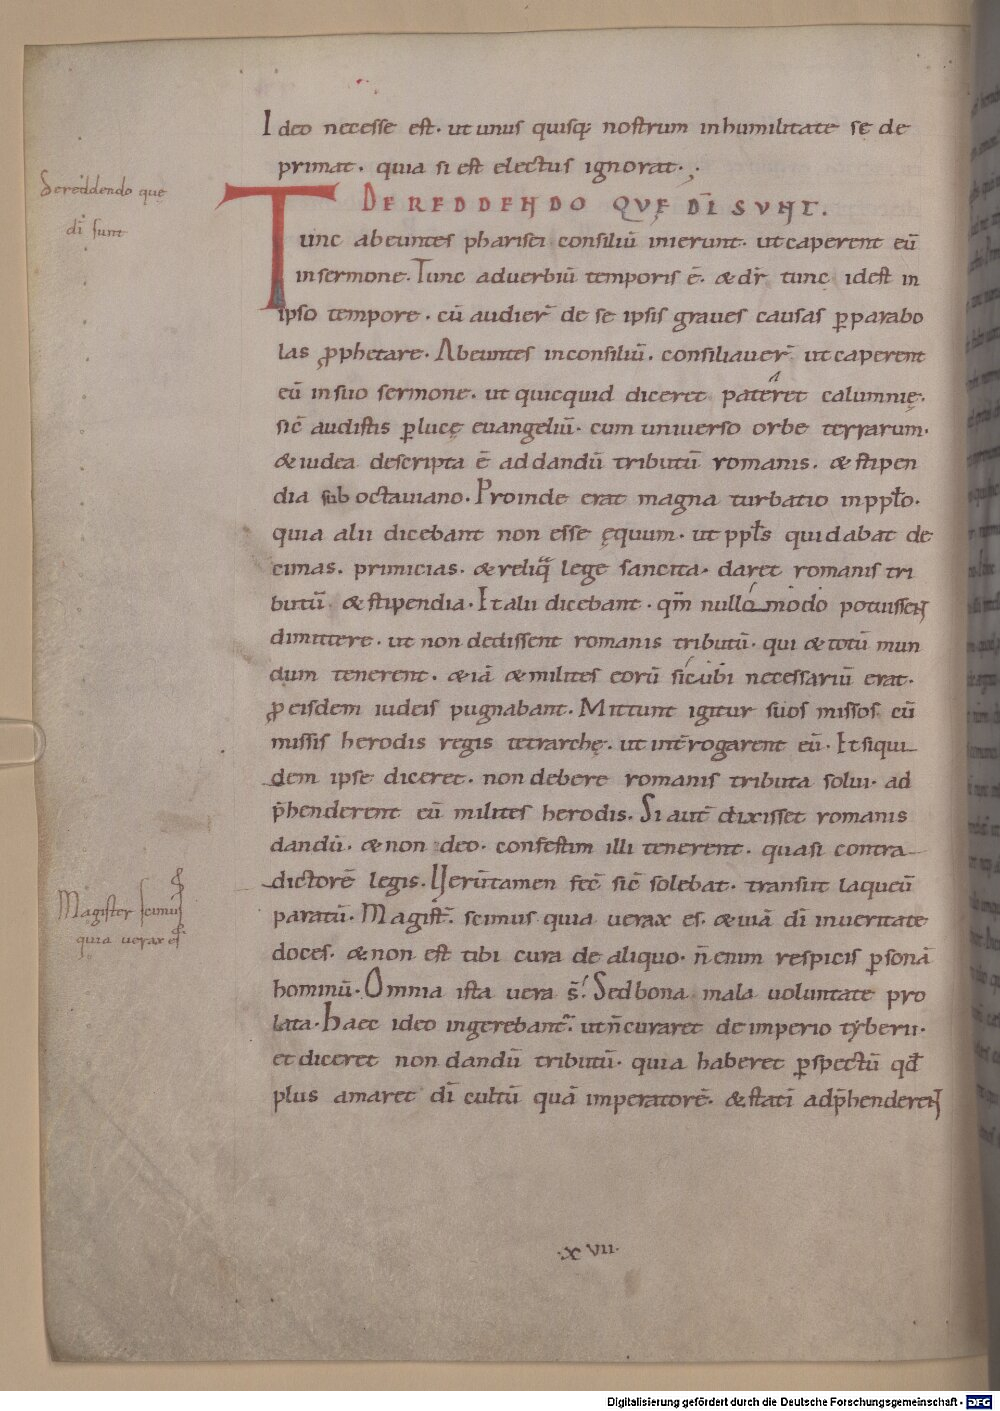 Ideo necesse est· ut unus quisq; nostrum inhumilitate se de
primat· quia si est electus ignorat·
Dereddendo que
dī sunt
DE REDDENDO QVĘ DĪ SVNT.
Tunc abeuntes pharisei consiliū inierunt· ut caperent eū
insermone· Tunc aduerbiū temporis ē· & dr̄ tunc idest in
ipso tempore· cū audier̄ de se ipsis graues causas ꝑparabo
las ꝓphetare· Abeuntes inconsiliū· consiliauer̄ ut caperent
eū insuo sermone· ut quicquid diceret pateret calumnię·
sic̄ audistis ꝑlucę euangeliū· cum uniuerso orbe terrarum·
& iudea descripta ē addandū tributū romanis· & stipen
dia sub octauiano· Proinde erat magna turbatio inppło·
quia alii dicebant non esse ęquum· ut ppłs quidabat de
cimas· primicias· & reliq̄ lege sancita· daret romanis tri
butū· & stipendia· Et alii dicebant· qm̄ nullo modo potuissent
dimittere· ut non dedissent romanis tributū· qui & totū mun
dum tenerent· & iā & milites eorū sic̄ubi necessariū erat·
ꝓ eisdem iudeis pugnabant· Mittunt igitur suos missos cū
missis herodis regis tetrarchę· ut int̄rogarent eū· Et siqui
dem ipse diceret· non debere romanis tributa solui· ad
p̄henderent eū milites herodis· Si aut̄ dixisset romanis
dandū· & non deo· confestim illi tenerent· quasi contra
dictorē legis· Uerūtamen fec̄ sic̄ solebat· transiit laqueū
Magister scimus
quia uerax es
paratū· Magist̄· scimus quia uerax es· & uiā dī inueritate
doces· & non est tibi cura de aliquo· n̄ enim respicis ꝑsonā
hominū· Omnia ista uera s̄· Sed bona mala uoluntate pro
lata· Haec ideo ingerebant· ut n̄ curaret de imperio tyberii·
et diceret non dandū tributū· quia haberet ꝑspectū qđ
plus amaret dī cultū quā imperatorē· & statī adp̄henderent
·xvii·
Digitalisierung gefördert durch die Deutsche Forschungsgemeinschaft - DFG